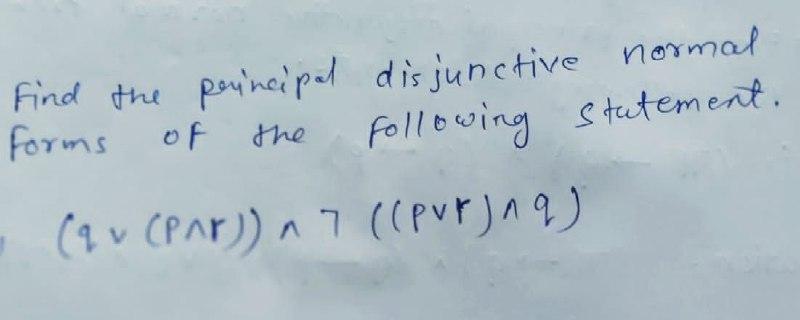 Find the principal disjunctive normal
forms of the following statement.
(q ∨ (p∧r)) ∧ ¬ ((p∨r)∧q)